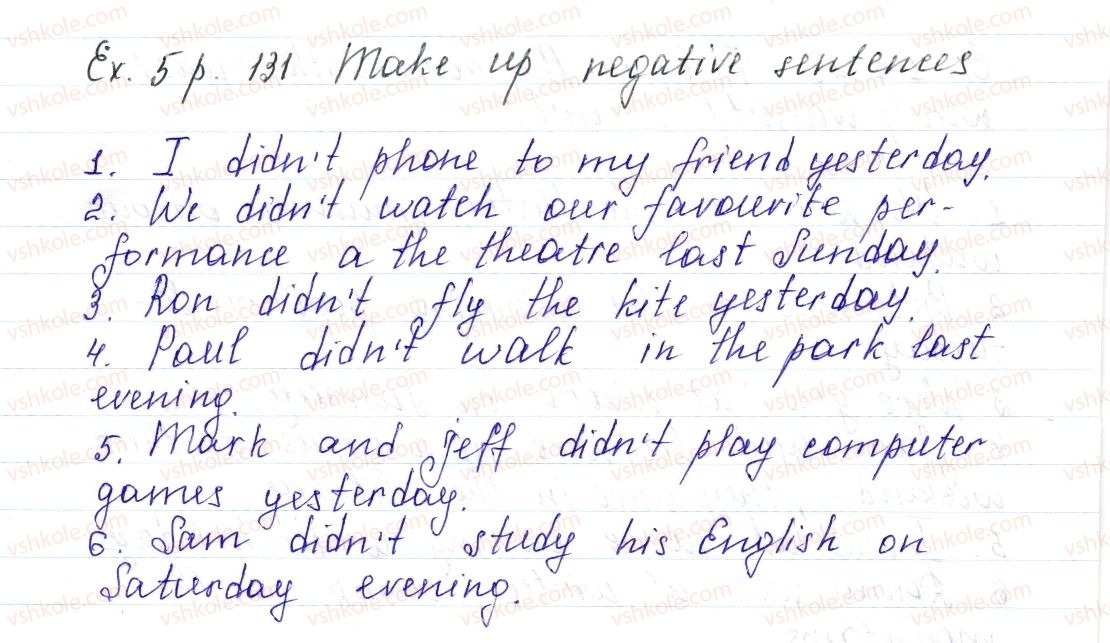 Ex. 5 p. 131 Make up negative sentences
1. I didn't phone to my friend yesterday.
2. We didn't watch our favourite per-
formance a the theatre last Sunday.
3. Ron didn't fly the kite yesterday.
4. Paul didn't walk in the park last
evening.
5. Mark and Jeff didn't play computer
games yesterday.
6. Sam didn't study his English on
Saturday evening.